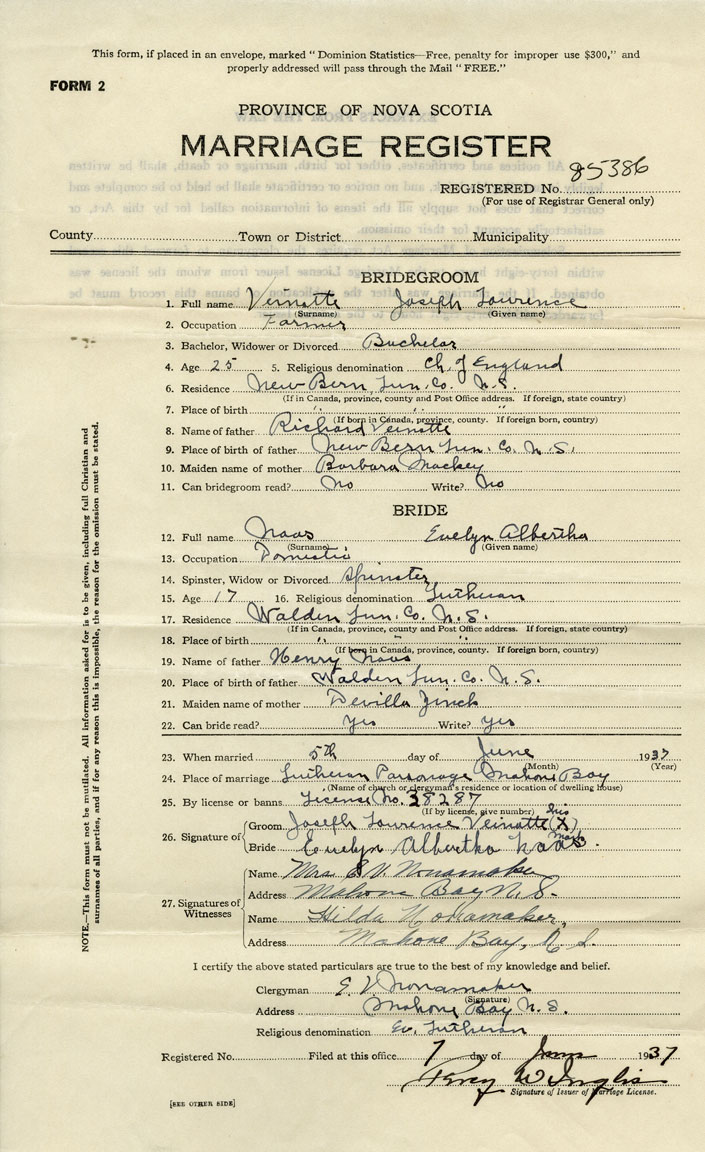 This form, if placed in an envelope, marked " Dominion Statistics—Free, penalty for improper use $300," and
properly addressed will pass through the Mail " FREE."
FORM 2
PROVINCE OF NOVA SCOTIA
MARRIAGE REGISTER
REGISTERED No. 85386
(For use of Registrar General only)
County Town or District Municipality
BRIDEGROOM
1. Full name Veinotte Joseph Lourence
(Surname) (Given name)
2. Occupation Farmer
3. Bachelor, Widower or Divorced Bachelor
4. Age 25 5. Religious denomination Ch. of England
6. Residence New Bern, Lun. Co. N.S.
(If in Canada, province, county and Post Office address. If foreign, state county)
7. Place of birth " " "
(If born in Canada, province, county. If foreign born, country)
8. Name of father Richard Veinotte
9. Place of birth of father New Bern Lun. Co. N.S.
10. Maiden name of mother Barbara Mackey
11. Can bridegroom read? No Write? No
BRIDE
12. Full name Naas Evelyn Albertha
(Surname) (Given name)
13. Occupation Domestic
14. Spinster, Widow or Divorced Spinster
15. Age 17 16. Religious denomination Lutheran
17. Residence Walden Lun. Co. N.S.
(If in Canada, province, county and Post Office address. If foreign, state country)
18. Place of birth " " "
(If born in Canada, province, county. If foreign born, country)
19. Name of father Henry Naas
20. Place of birth of father Walden Lun. Co. N.S.
21. Maiden name of mother Devilla Zinck
22. Can bride read? yes Write? yes
23. When married 5th day of June 1937
(Month) (Year)
24. Place of marriage Lutheran Parsonage Mahone Bay
(Name of church or clergyman's residence or location of dwelling house)
25. By license or banns License No. 38287
(If by license, give number)
26. Signature of Groom Joseph Lourence Veinotte his (X) mark
Bride Evelyn Albertha Naas.
27. Signatures of Witnesses
Name Mrs. E. V. Nonamaker
Address Mahone Bay N.S.
Name Hilda Nonamaker,
Address Mahone Bay, N.S.
I certify the above stated particulars are true to the best of my knowledge and belief.
Clergyman E. V. Nonamaker
(Signature)
Address Mahone Bay N.S.
Religious denomination Ev. Lutheran
Registered No. Filed at this office 7 day of June 1937
Signature of Issuer of Marriage License.
[SEE OTHER SIDE]
NOTE.—This form must not be mutilated. All information asked for is to be given, including full Christian and
surnames of all parties, and if for any reason this is impossible, the reason for the omission must be stated.